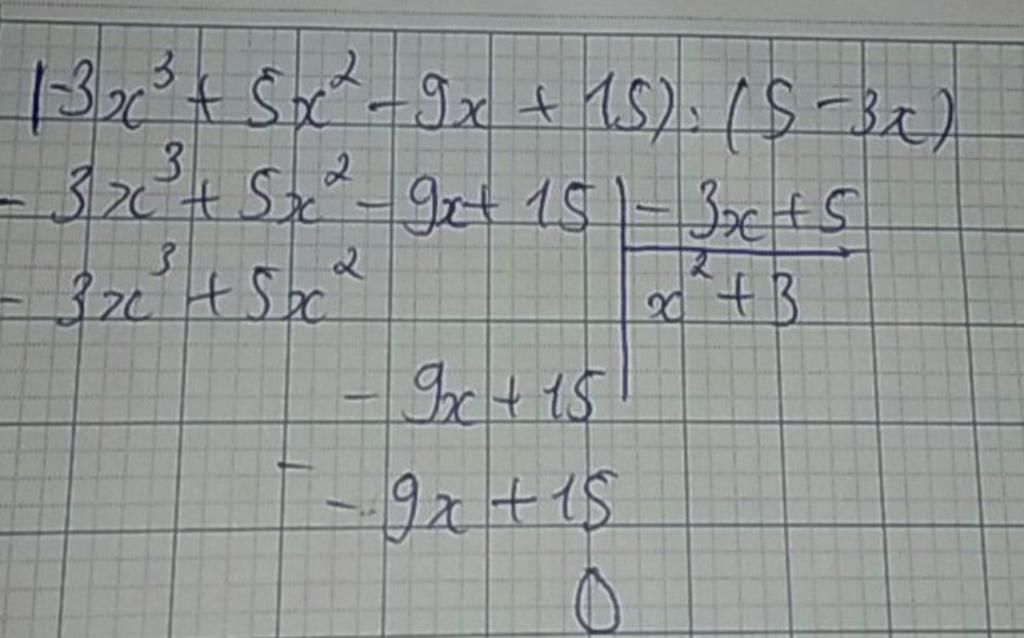 (-3x³ + 5x² - 9x + 15) : (5 - 3x)
- 3x³ + 5x² - 9x + 15 | - 3x + 5
- 3x³ + 5x² | x² + 3
- 9x + 15
-
- 9x + 15
0